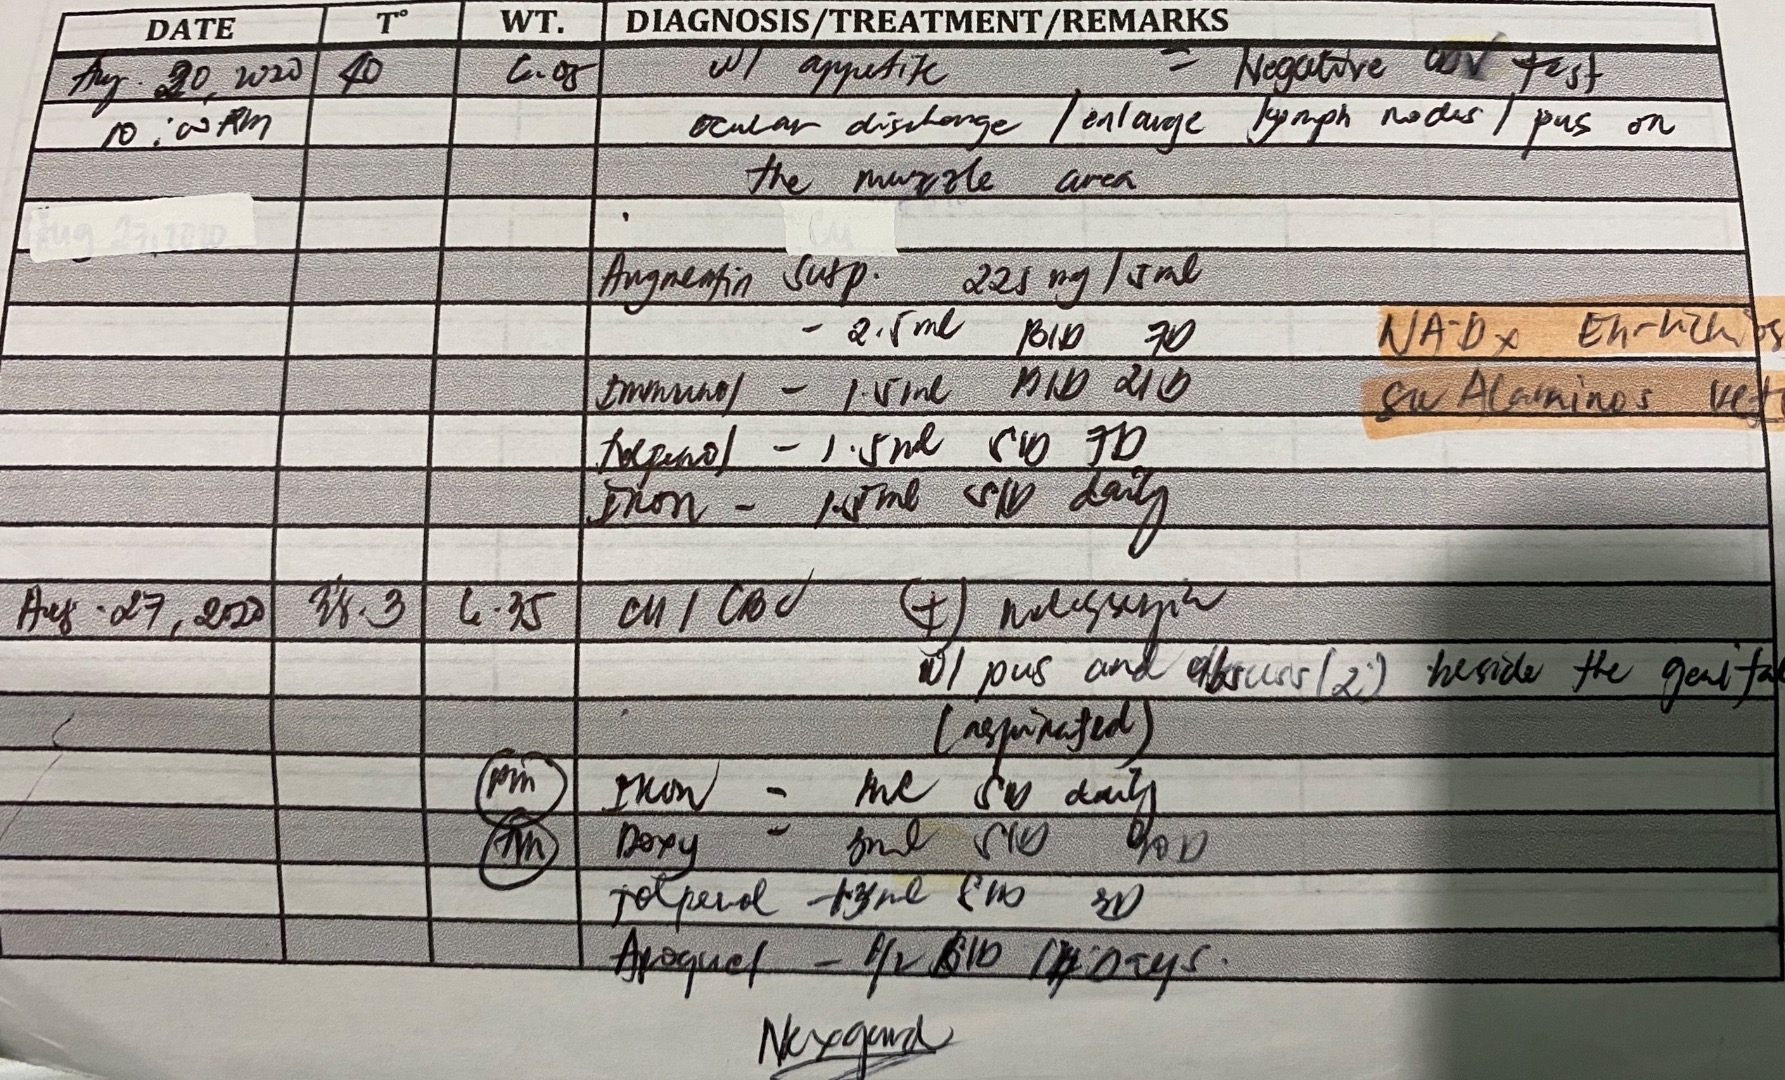 DATE T° WT. DIAGNOSIS/TREATMENT/REMARKS
Aug. 20, 2020 40 6.05 w/ appetite = Negative CDV test
10:00 AM ocular discharge / enlarge lymph nodes / pus on
the muzzle area
Aug 27, 2020 CU
Augmentin Susp. 225 mg / 5ml
- 2.5ml BID 7D NA-Dx
Immunol - 1.5ml BID 21D sa Alaminos
Tolpenol - 1.5ml SID 7D
Iron - 1.5ml SID daily
Aug. 27, 2020 38.3 6.35 CU / CBC (+)
w/ pus and abscess (2) beside the genital
(aspirated)
PM Iron - ml SID daily
Doxy - SID
Tolpenol - SID 3D
Apoquel - 1/2 BID Days.
Nexgard